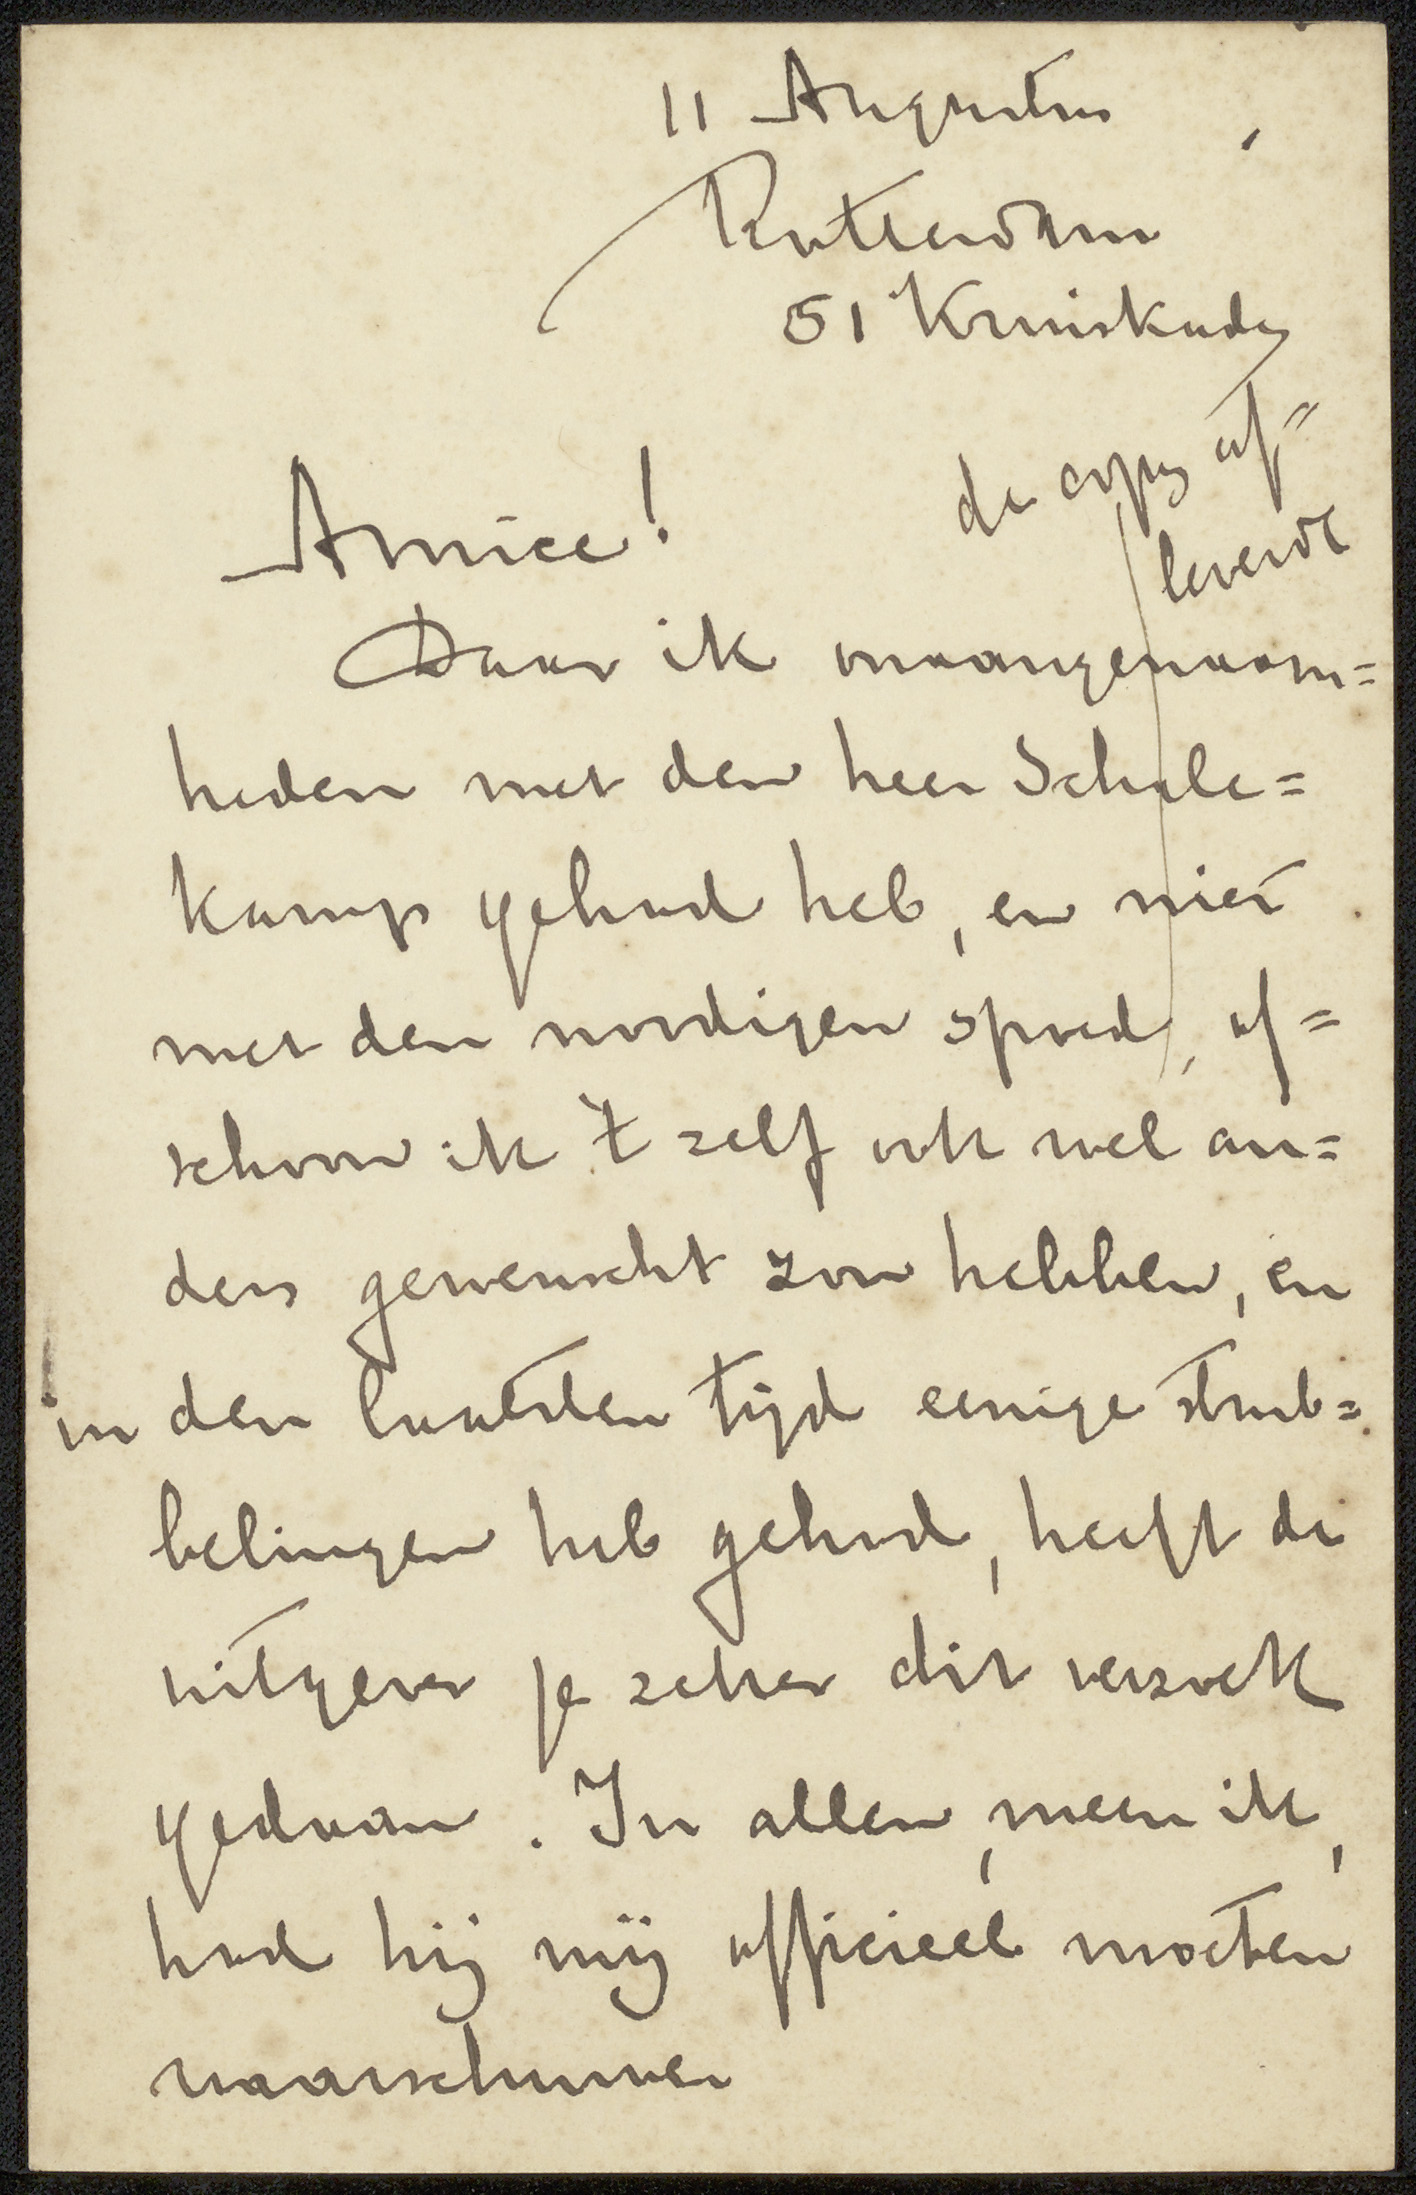 11 Augustus
Rotterdam
51 Kruiskade
Amice!
de copy af=
leverde
Daar ik onaangenaam=
heden met den heer Schale=
kamp gehad heb, en niet
met den noodigen spoed, of=
schoon ik 't zelf ook wel an=
ders gewenscht zou hebben, en
in den laatsten tijd eenige strub=
belingen heb gehad, heeft de
uitgever je zeker dit verzoek
gedaan. In allen, meen ik,
had hij mij officieel moeten
waarschuwen